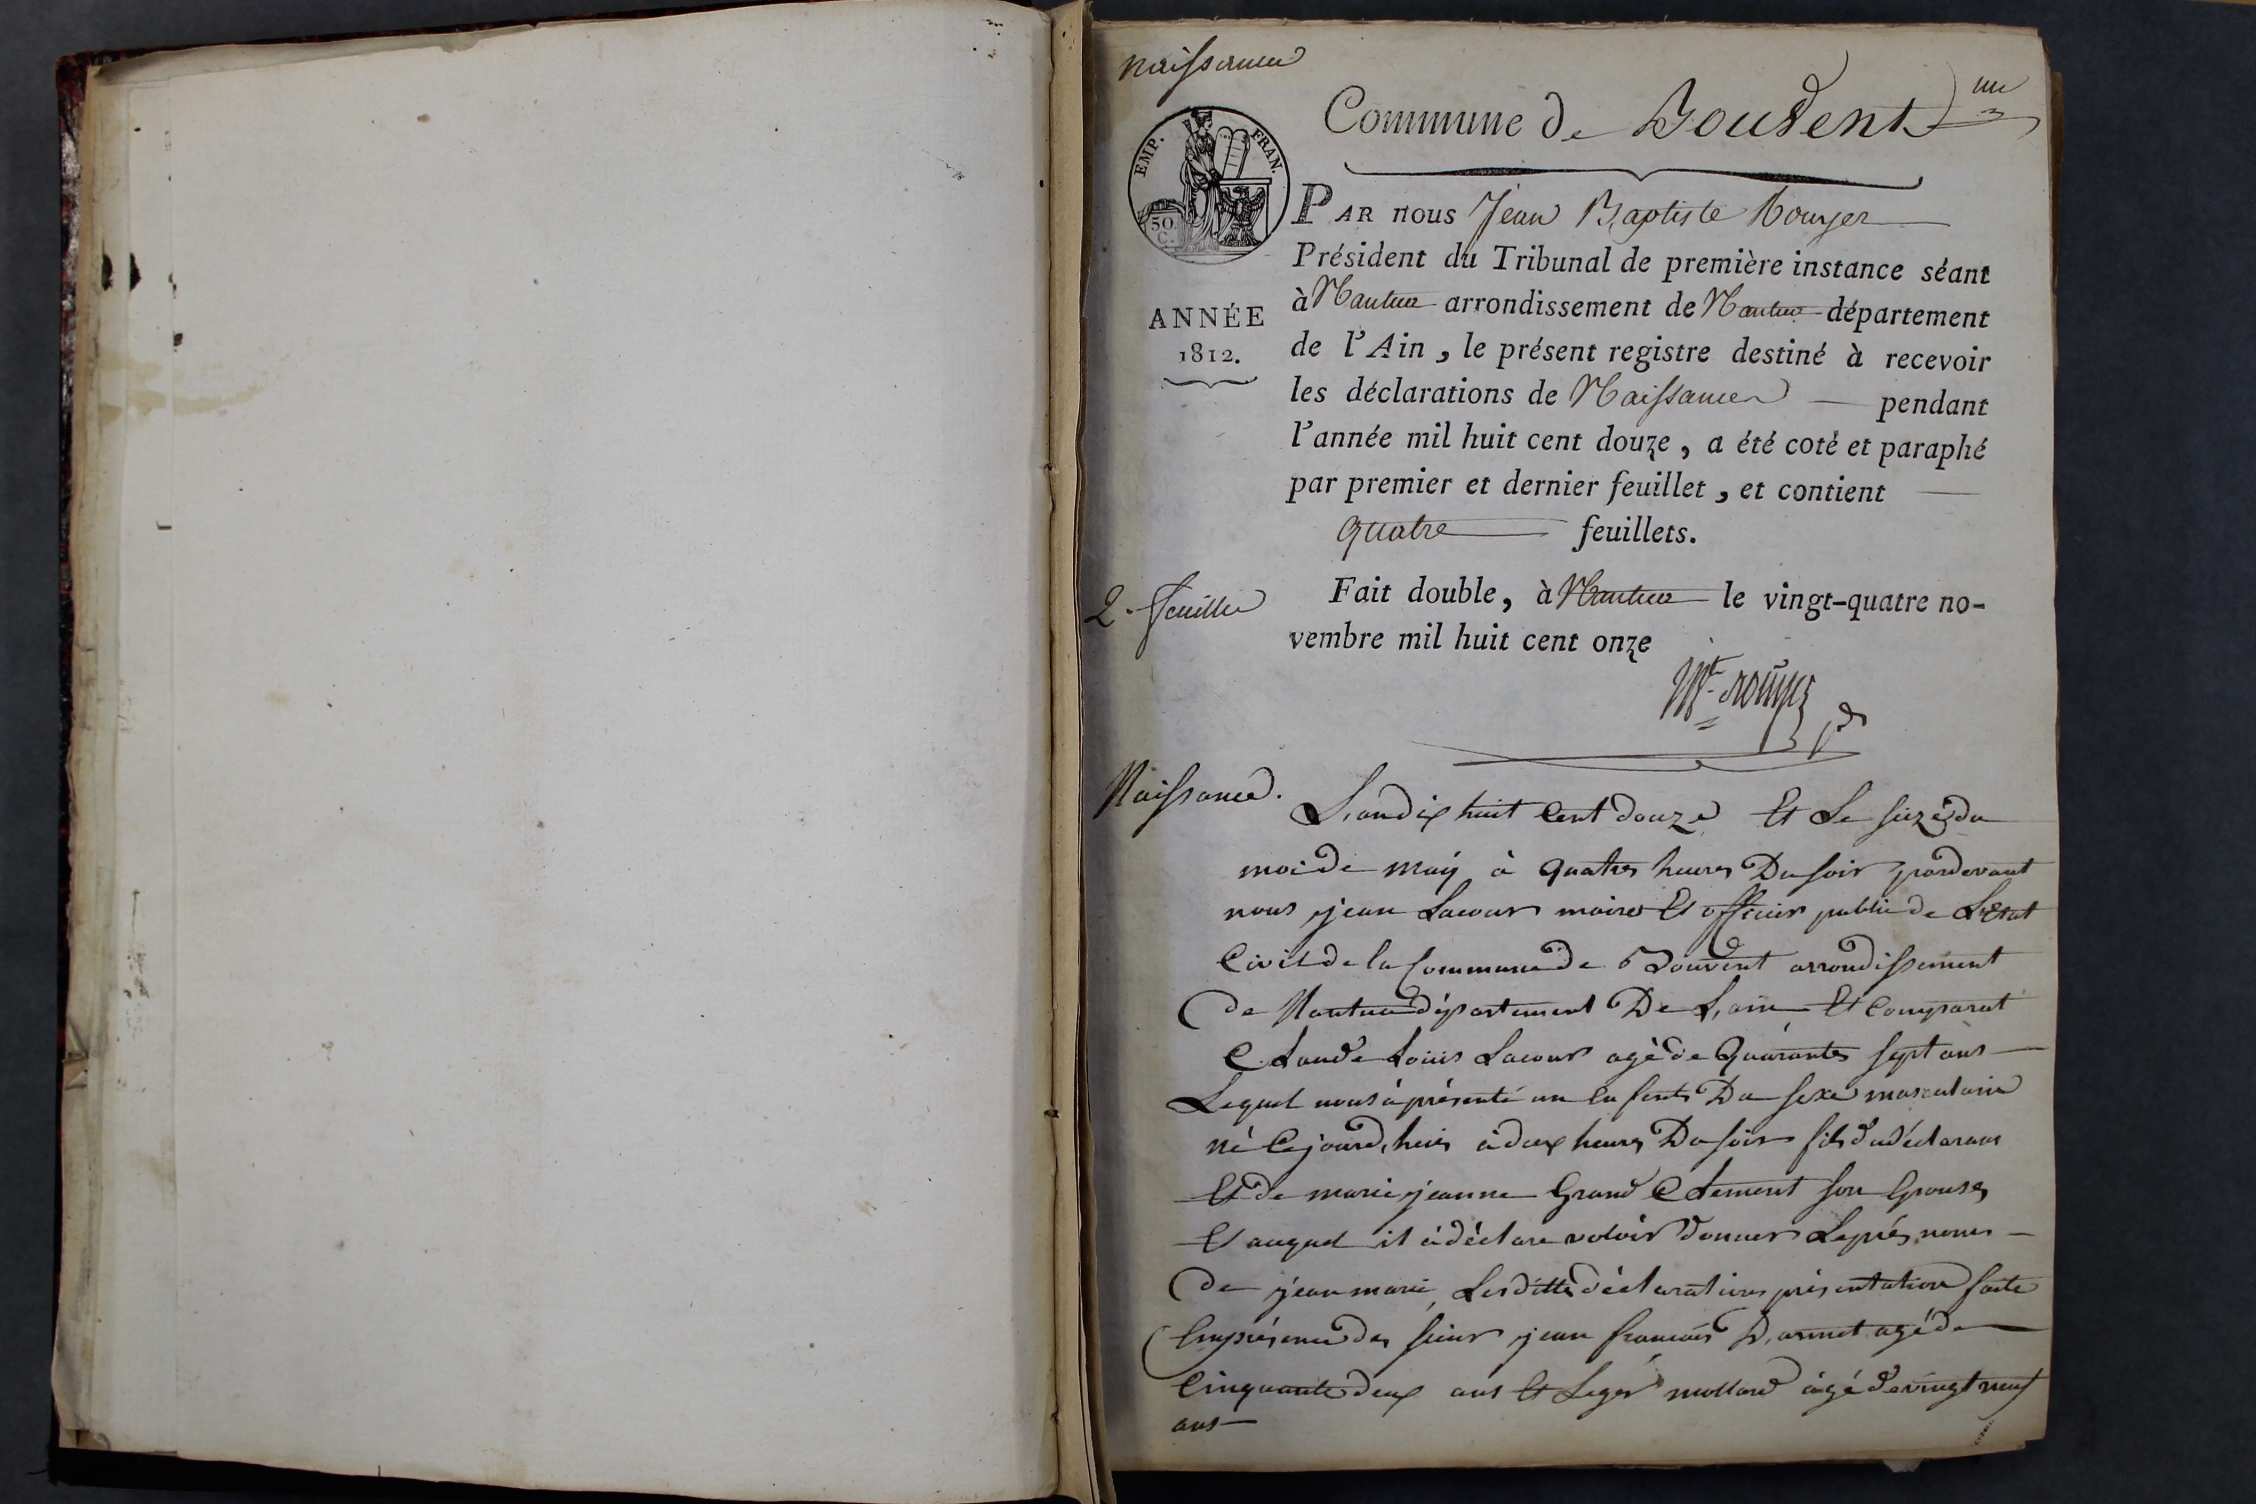 naissance
Commune de Bouvent
un
EMP. FRAN.
50
C.
PAR nous Jean Baptiste Rouyer
Président du Tribunal de première instance séant
à Nantua arrondissement de Nantua département
ANNÉE
1812.
de l'Ain, le présent registre destiné à recevoir
les déclarations de Naissances pendant
l'année mil huit cent douze, a été coté et paraphé
par premier et dernier feuillet, et contient
quatre feuillets.
2. feuille
Fait double, à Nantua le vingt-quatre no-
vembre mil huit cent onze
Naissance.
L'an dix huit Cent douze Et Le seize du
moi de may à quatres heures Du soir pardevant
nous jean Lacour maire Et officier public de L'Etat
Civil de la Commune de Bouvent arrondissement
de Nantua département De L,ain Et Comparut
Claude Louis Lacour agé de Quarantes sept ans
Lequel nous à présenté un enfents Du sexe masculain
né Cejourd,huis à deux heures Du soir fils du déclarant
Et de marie jeanne Grand Clement son Epouse,
Et auquel il à déclare voloir donner Le prés,noms
De jean marie, Lesditte déclarations présentation faite
En présence des sieur jean francois D,armet agé de
Cinquante deux ans Et Leger mollard àgé de vingt neuf
ans